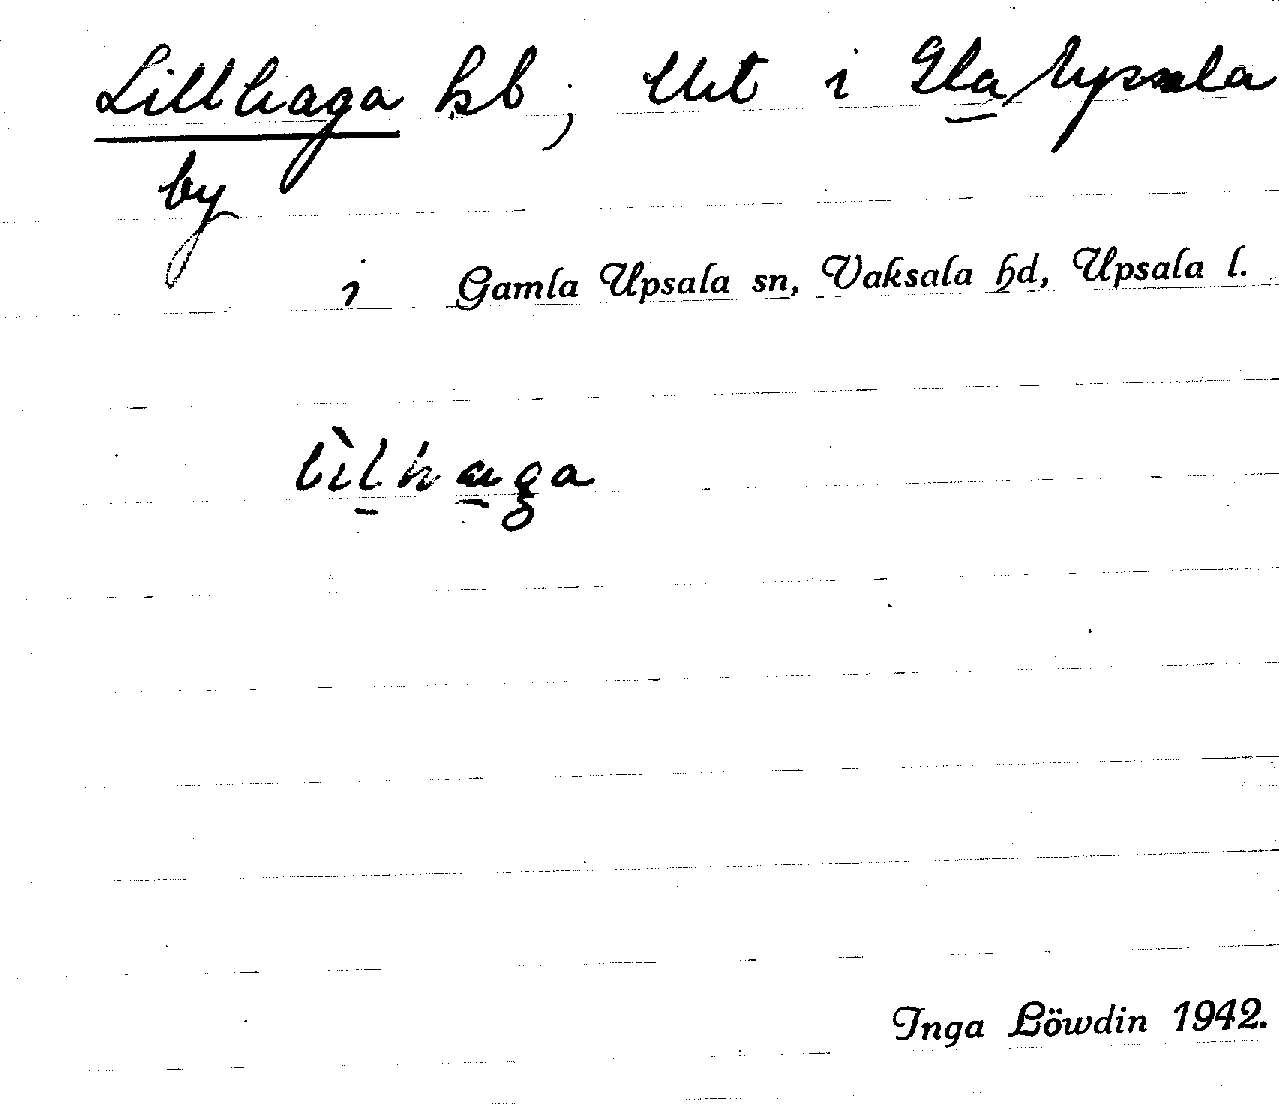 Lillhaga hb; Utt i Gla Upsala
by
i Gamla Upsala sn, Vaksala hd, Upsala l.
lìlhaga
Inga Löwdin 1942.